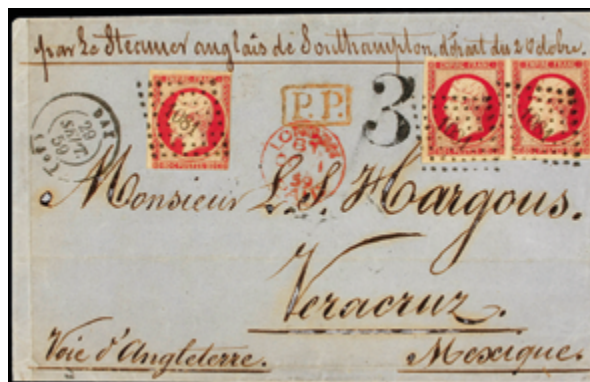 par Le Steamer anglais de Southampton, départ du 2 Octobre.
EMPIRE FRANC
EMPIRE FRANC
EMPIRE FRANC
P.P.
3
DAX
29
SEPT.
59
Monsieur L. S. Hargous.
Veracruz.
Voie d'Angleterre.
Mexique.